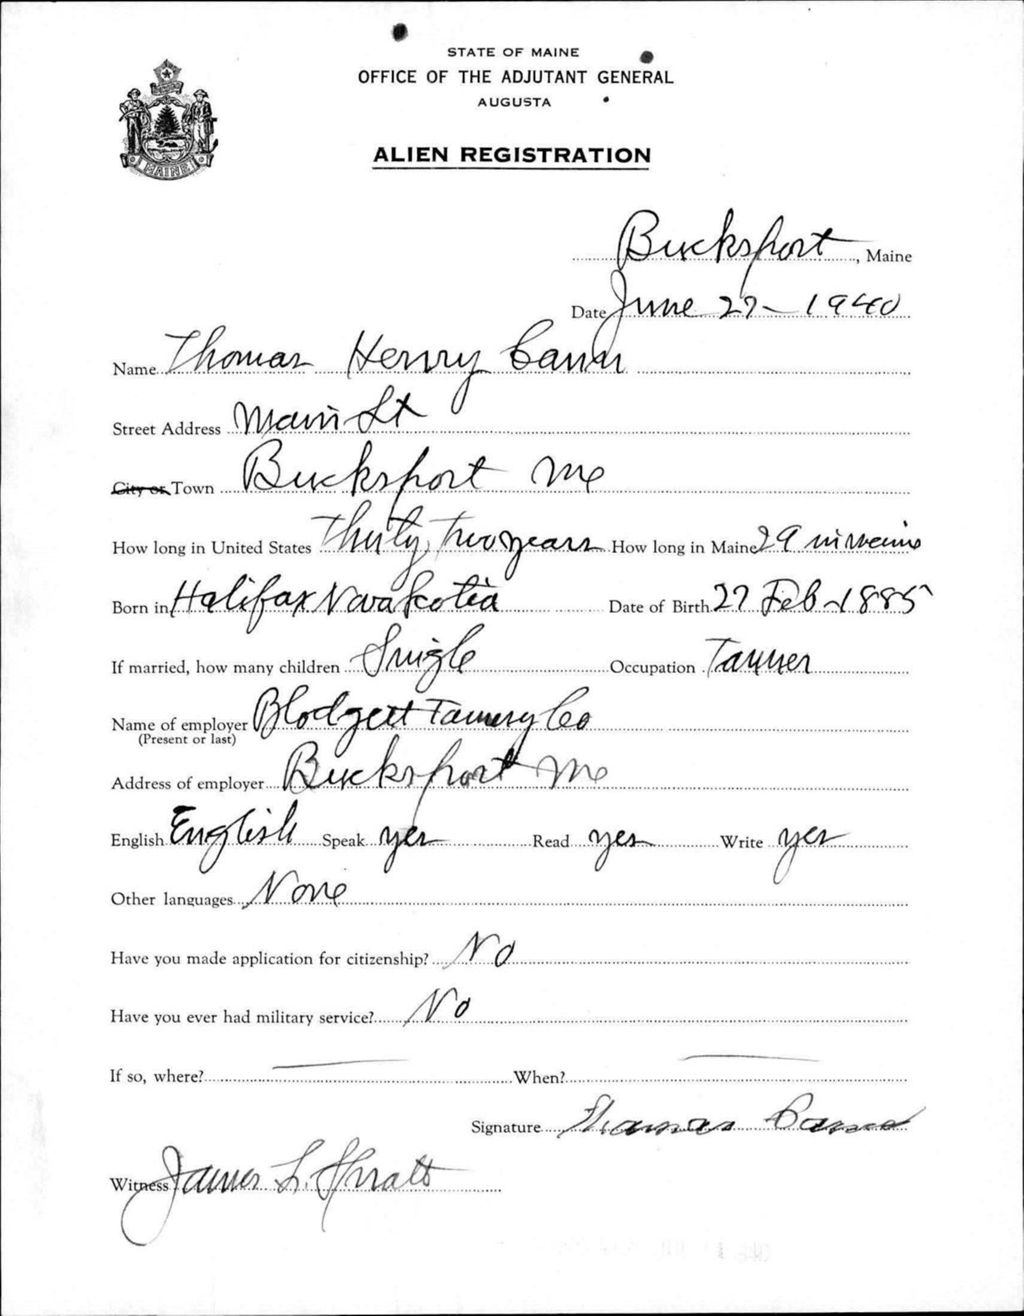 STATE OF MAINE
OFFICE OF THE ADJUTANT GENERAL
AUGUSTA
MAINE
ALIEN REGISTRATION
Bucksport, Maine
Date June 27 - 1940
Name Thomas Henry Cann
Street Address Main St
City or Town Bucksport Me
How long in United States Thirty, two years How long in Maine 29 in
Born in Halifax Nova Scotia Date of Birth 27 Feb - 1885
If married, how many children Single Occupation Tanner
Name of employer Blodgett Tannery Co
(Present or last)
Address of employer Bucksport Me
English English Speak yes Read yes Write yes
Other languages None
Have you made application for citizenship? No
Have you ever had military service? No
If so, where? When?
Signature Thomas Cann
Witness James L.